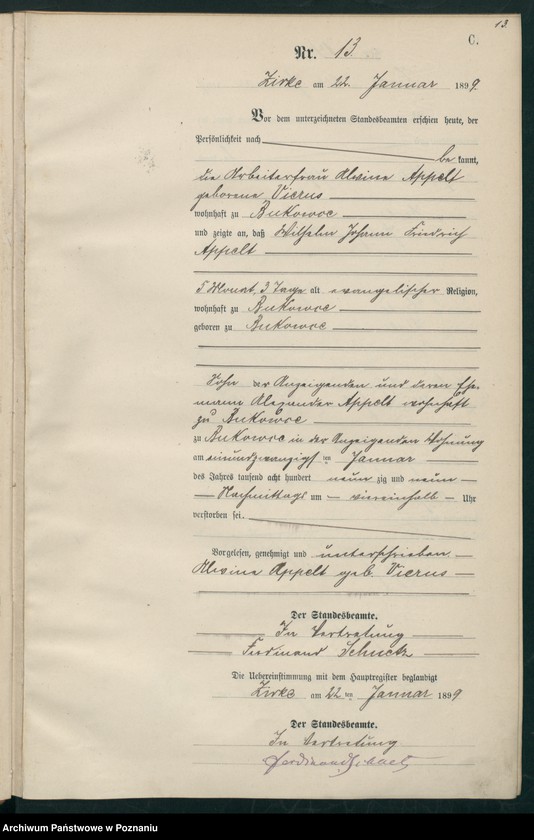 13.
C.
Nr. 13
Zirke am 22. Januar 1899.
Vor dem unterzeichneten Standesbeamten erschien heute, der
Persönlichkeit nach
bekannt,
die Arbeiterfrau Alwine Appelt
geborene Vierus
wohnhaft zu Bukowce
und zeigte an, daß Wilhelm Johann Friedrich
Appelt
5 Monat, 3 Tage alt evangelischer Religion,
wohnhaft zu Bukowce
geboren zu Bukowce
Sohn der Anzeigenden und deren Ehe-
mann Alexander Appelt wohnhaft
zu Bukowce
zu Bukowce in der Anzeigenden Wohnung
am einundzwanzigsten Januar
des Jahres tausend acht hundert neunzig und neun
Nachmittags um viereinhalb Uhr
verstorben sei.
Vorgelesen, genehmigt und unterschrieben
Alwine Appelt geb. Vierus
Der Standesbeamte.
In Vertretung
Ferdinand
Die Uebereinstimmung mit dem Hauptregister beglaubigt
Zirke am 22ten Januar 1899
Der Standesbeamte.
In Vertretung
Ferdinand
Archiwum Państwowe w Poznaniu